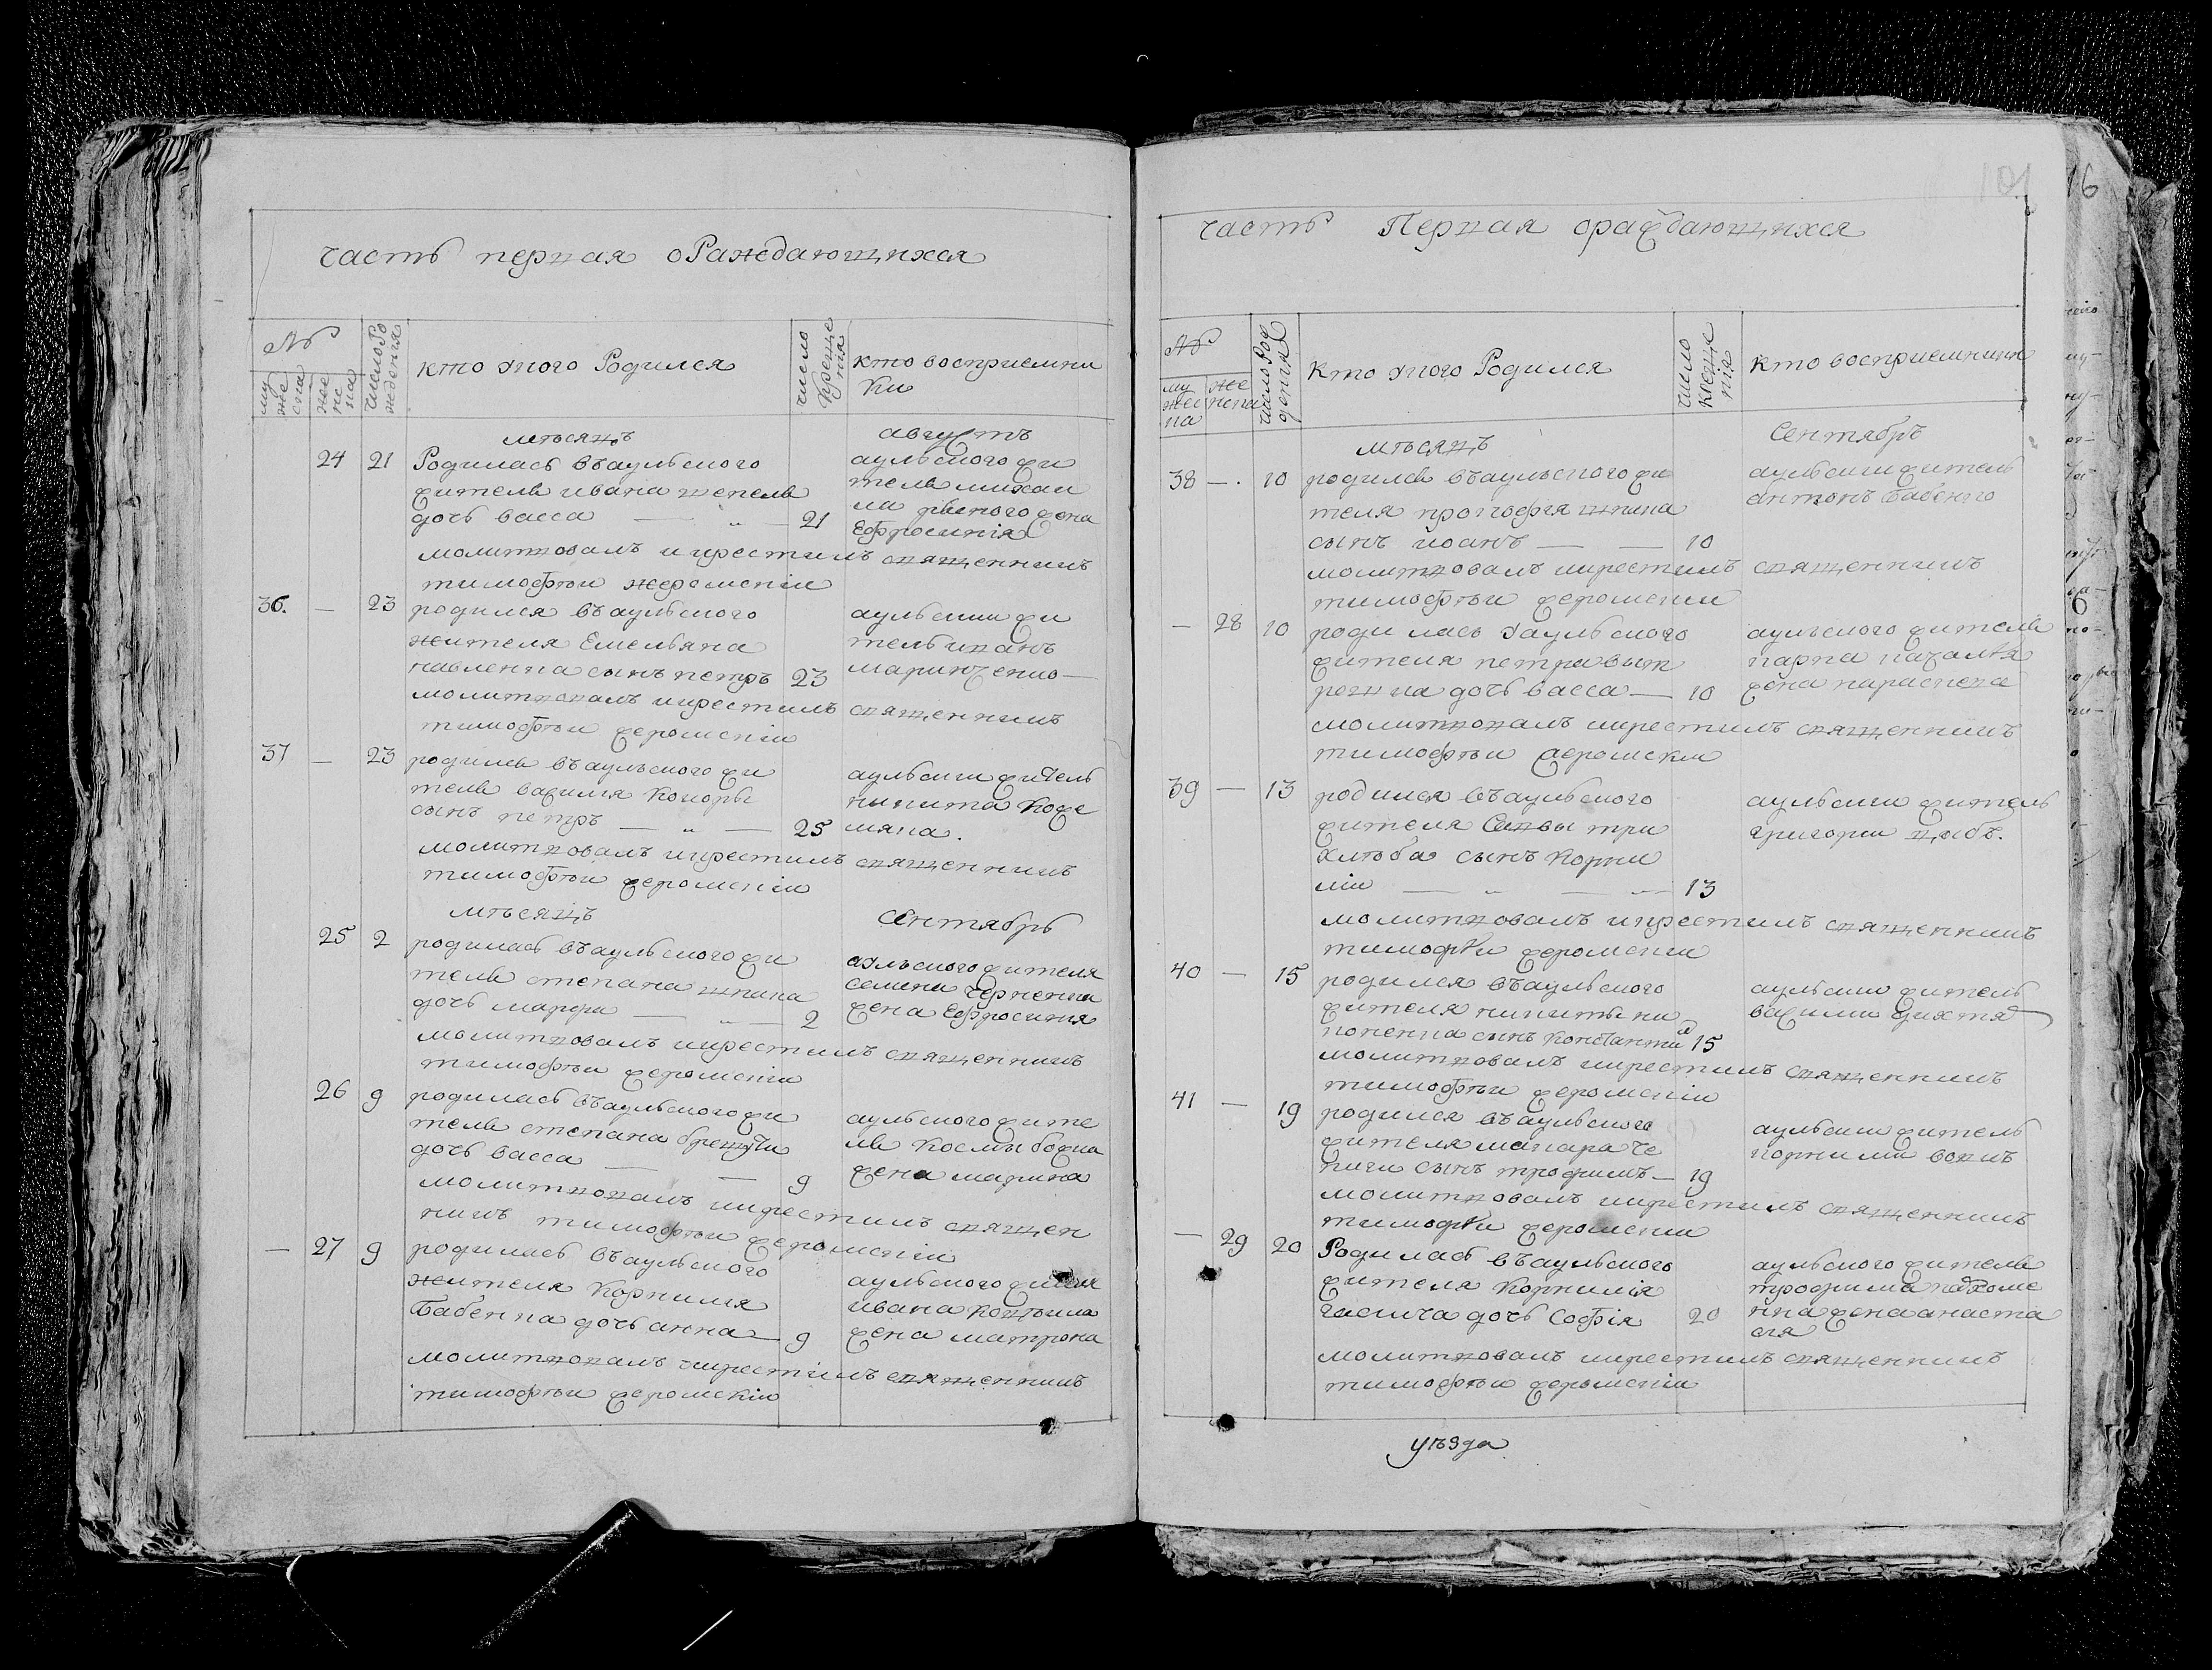 часть первая о Раждающихся
№
му
же
ска
же
не
на
число Ро
жденiя
кто унего Родился
число
креще
нiя
кто восприемни
ки
мѣсяцъ
августъ
24 21 Родилась въаульского
жителя ивана шепеля
дочь васса — „ — 21
аульского жи
теля михаи
ла жена
Ефросинiя
молитвовалъ икрестилъ священникъ
тимофѣи жеромскiи
36. — 23 родился въаульского
жителя Емельяна
павленка сынъ петръ 23
аульскии жи
тель иванъ
маринченко —
молитвовалъ икрестилъ священникъ
тимофѣи жеромскiи
37 — 23 родился въаульского жи
теля василiя Кокоры
сынъ петръ — „ — 25
аульскии житель
никита Коже
мяка.
молитвовалъ икрестилъ священникъ
тимофѣи жеромскiи
мѣсяцъ
Сентябрь
25 2 родилась въаульского жи
теля степана шпака
дочь марфа — „ — 2
аульского жителя
семена Черненка
жена Ефросинiя
молитвовалъ икрестилъ священникъ
тимофѣи жеромскiи
26 9 родилась въаульского жи
теля степана
дочь васса — — 9
аульского жите
ля космы божка
жена марина
молитвовалъ икрестилъ священ
никъ тимофѣи жеромскiи
— 27 9 родилась въаульского
жителя Корнилiя
Бабенка дочь анна — 9
аульского жителя
ивана коцюбила
жена матрона
молитвовалъ икрестiлъ священникъ
тимофѣи жеромскiи
часть Первая ораждающихся
№
му
жес
ка
же
нска
число Рож
денiя
кто унего Родился
число
креще
нiя
кто восприемники
мѣсяцъ
Сентябрь
38 — . 10 родился въаульского жи
теля прокофiя шпака
сынъ иоанъ — — 10
аульскии житель
антонъ бабенко
молитвовалъ икрестилъ священникъ
тимофѣи жеромскiи
— 28 10 родилась уаульского
жителя петра вит
рошка дочь васса — 10
аульского жителя
карпа качалки
жена параскева
молитвовалъ икрестилъ священникъ
тимофѣи жеромскiи
39 — 13 родился въаульского
жителя Саввы три
хлѣба сынъ Корни
лiи — „ — „ — 13
аульскии житель
григории цибъ.
молитвовалъ икрестилъ священникъ
тимофѣи жеромскiи
40 — 15 родился въаульского
жителя никиты ки
поненка сынъ Константи 15
аульскии житель
василии
молитвовалъ икрестилъ священникъ
тимофѣи жеромскiи
41 — 19 родился въаульского
жителя макара Че
пиги сынъ трофимъ — 19
аульскии житель
корнилiи вовкъ
молитвовалъ икрестилъ священникъ
тимофѣи жеромскiи
— 29 20 Родилась въаульского
жителя Корнилiя
дочь Софiя 20
аульского жителя
трофима пахоме
нка жена анаста
сiя
молитвовалъ икрестилъ священникъ
тимофѣи жеромскiи
уѣзда